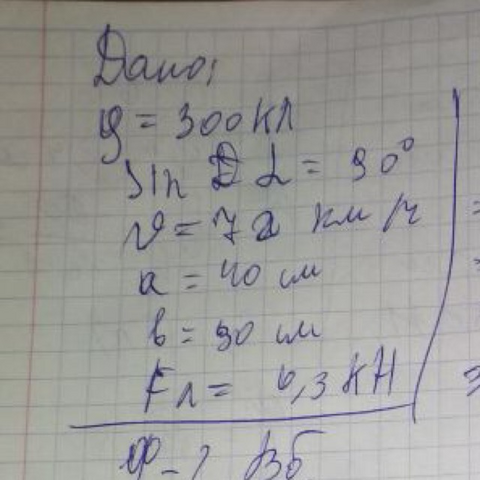 Дано:
q = 300 кл
sin α = 90°
v = 72 км/ч
a = 40 см
b = 90 см
Fл = 6,3 кН
Ф - ? Вб